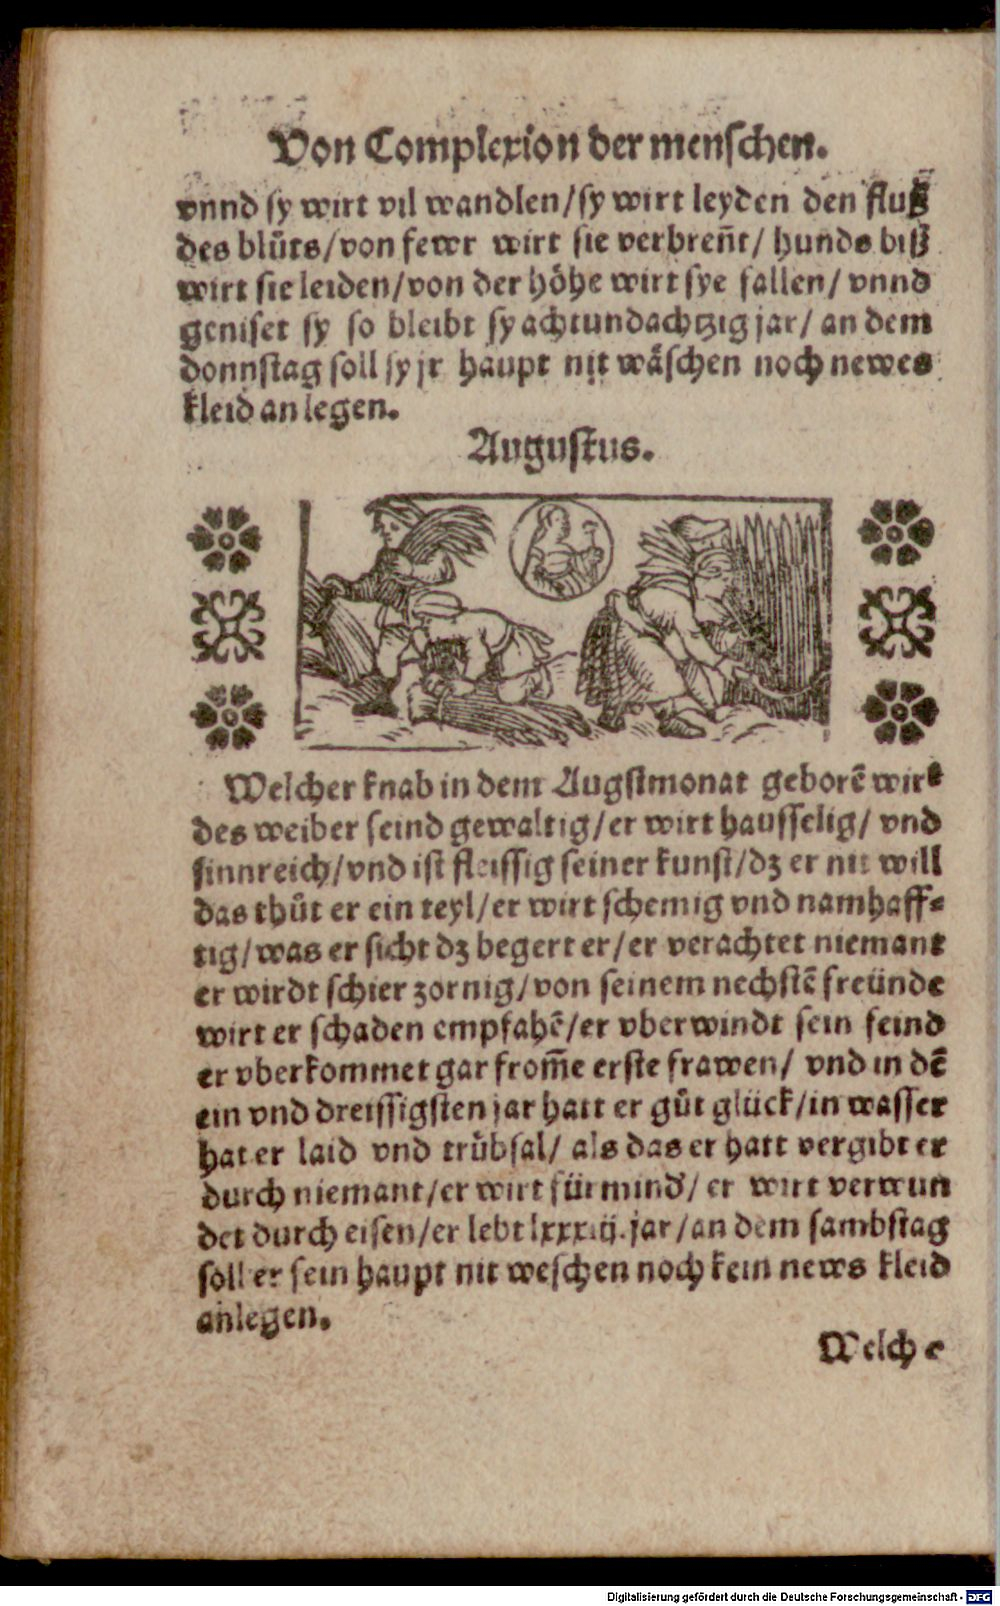 Von Complexion der menschen.
vnnd sy wirt vil wandlen/sy wirt leyden den fluß
des blůts/von fewr wirt sie verbreñt/ hunds biß
wirt sie leiden/von der höhe wirt sye fallen/ vnnd
geniset sy so bleibt sy achtundachtzig jar/ an dem
donnstag soll sy jr haupt nit wäschen noch newes
kleid anlegen.
Augustus.
Welcher knab in dem Augstmonat geborẽ wirt
des weiber seind gewaltig/er wirt hausselig/ vnd
sinnreich/vnd ist fleissig seiner kunst/dz er nit will
das thůt er ein teyl/er wirt schemig vnd namhaff⸗
tig/was er sicht dz begert er/er verachtet niemant
er wirdt schier zornig/von seinem nechstẽ freünde
wirt er schaden empfahẽ/er vberwindt sein feind
er vberkommet gar from̃e erste frawen/ vnd in dẽ
ein vnd dreissigsten jar hatt er gůt glück/in wasser
hat er laid vnd trübsal/ als das er hatt vergibt er
durch niemant/er wirt für mind'/ er wirt verwun
det durch eisen/er lebt lxxxiij.jar/an dem sambstag
soll er sein haupt nit weschen noch kein news kleid
anlegen.
Welche
Digitalisierung gefördert durch die Deutsche Forschungsgemeinschaft - DFG